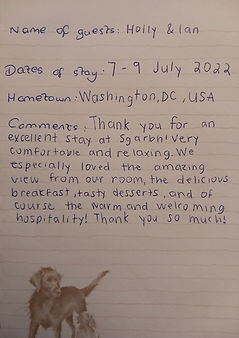 Name of guests: Holly & Ian
Dates of stay: 7-9 July 2022
Hometown: Washington, DC, USA
Comments: Thank you for an
excellent stay at Sgarbh! Very
comfortable and relaxing. We
especially loved the amazing
view from our room, the delicious
breakfast, tasty desserts, and of
course the warm and welcoming
hospitality! Thank you so much!